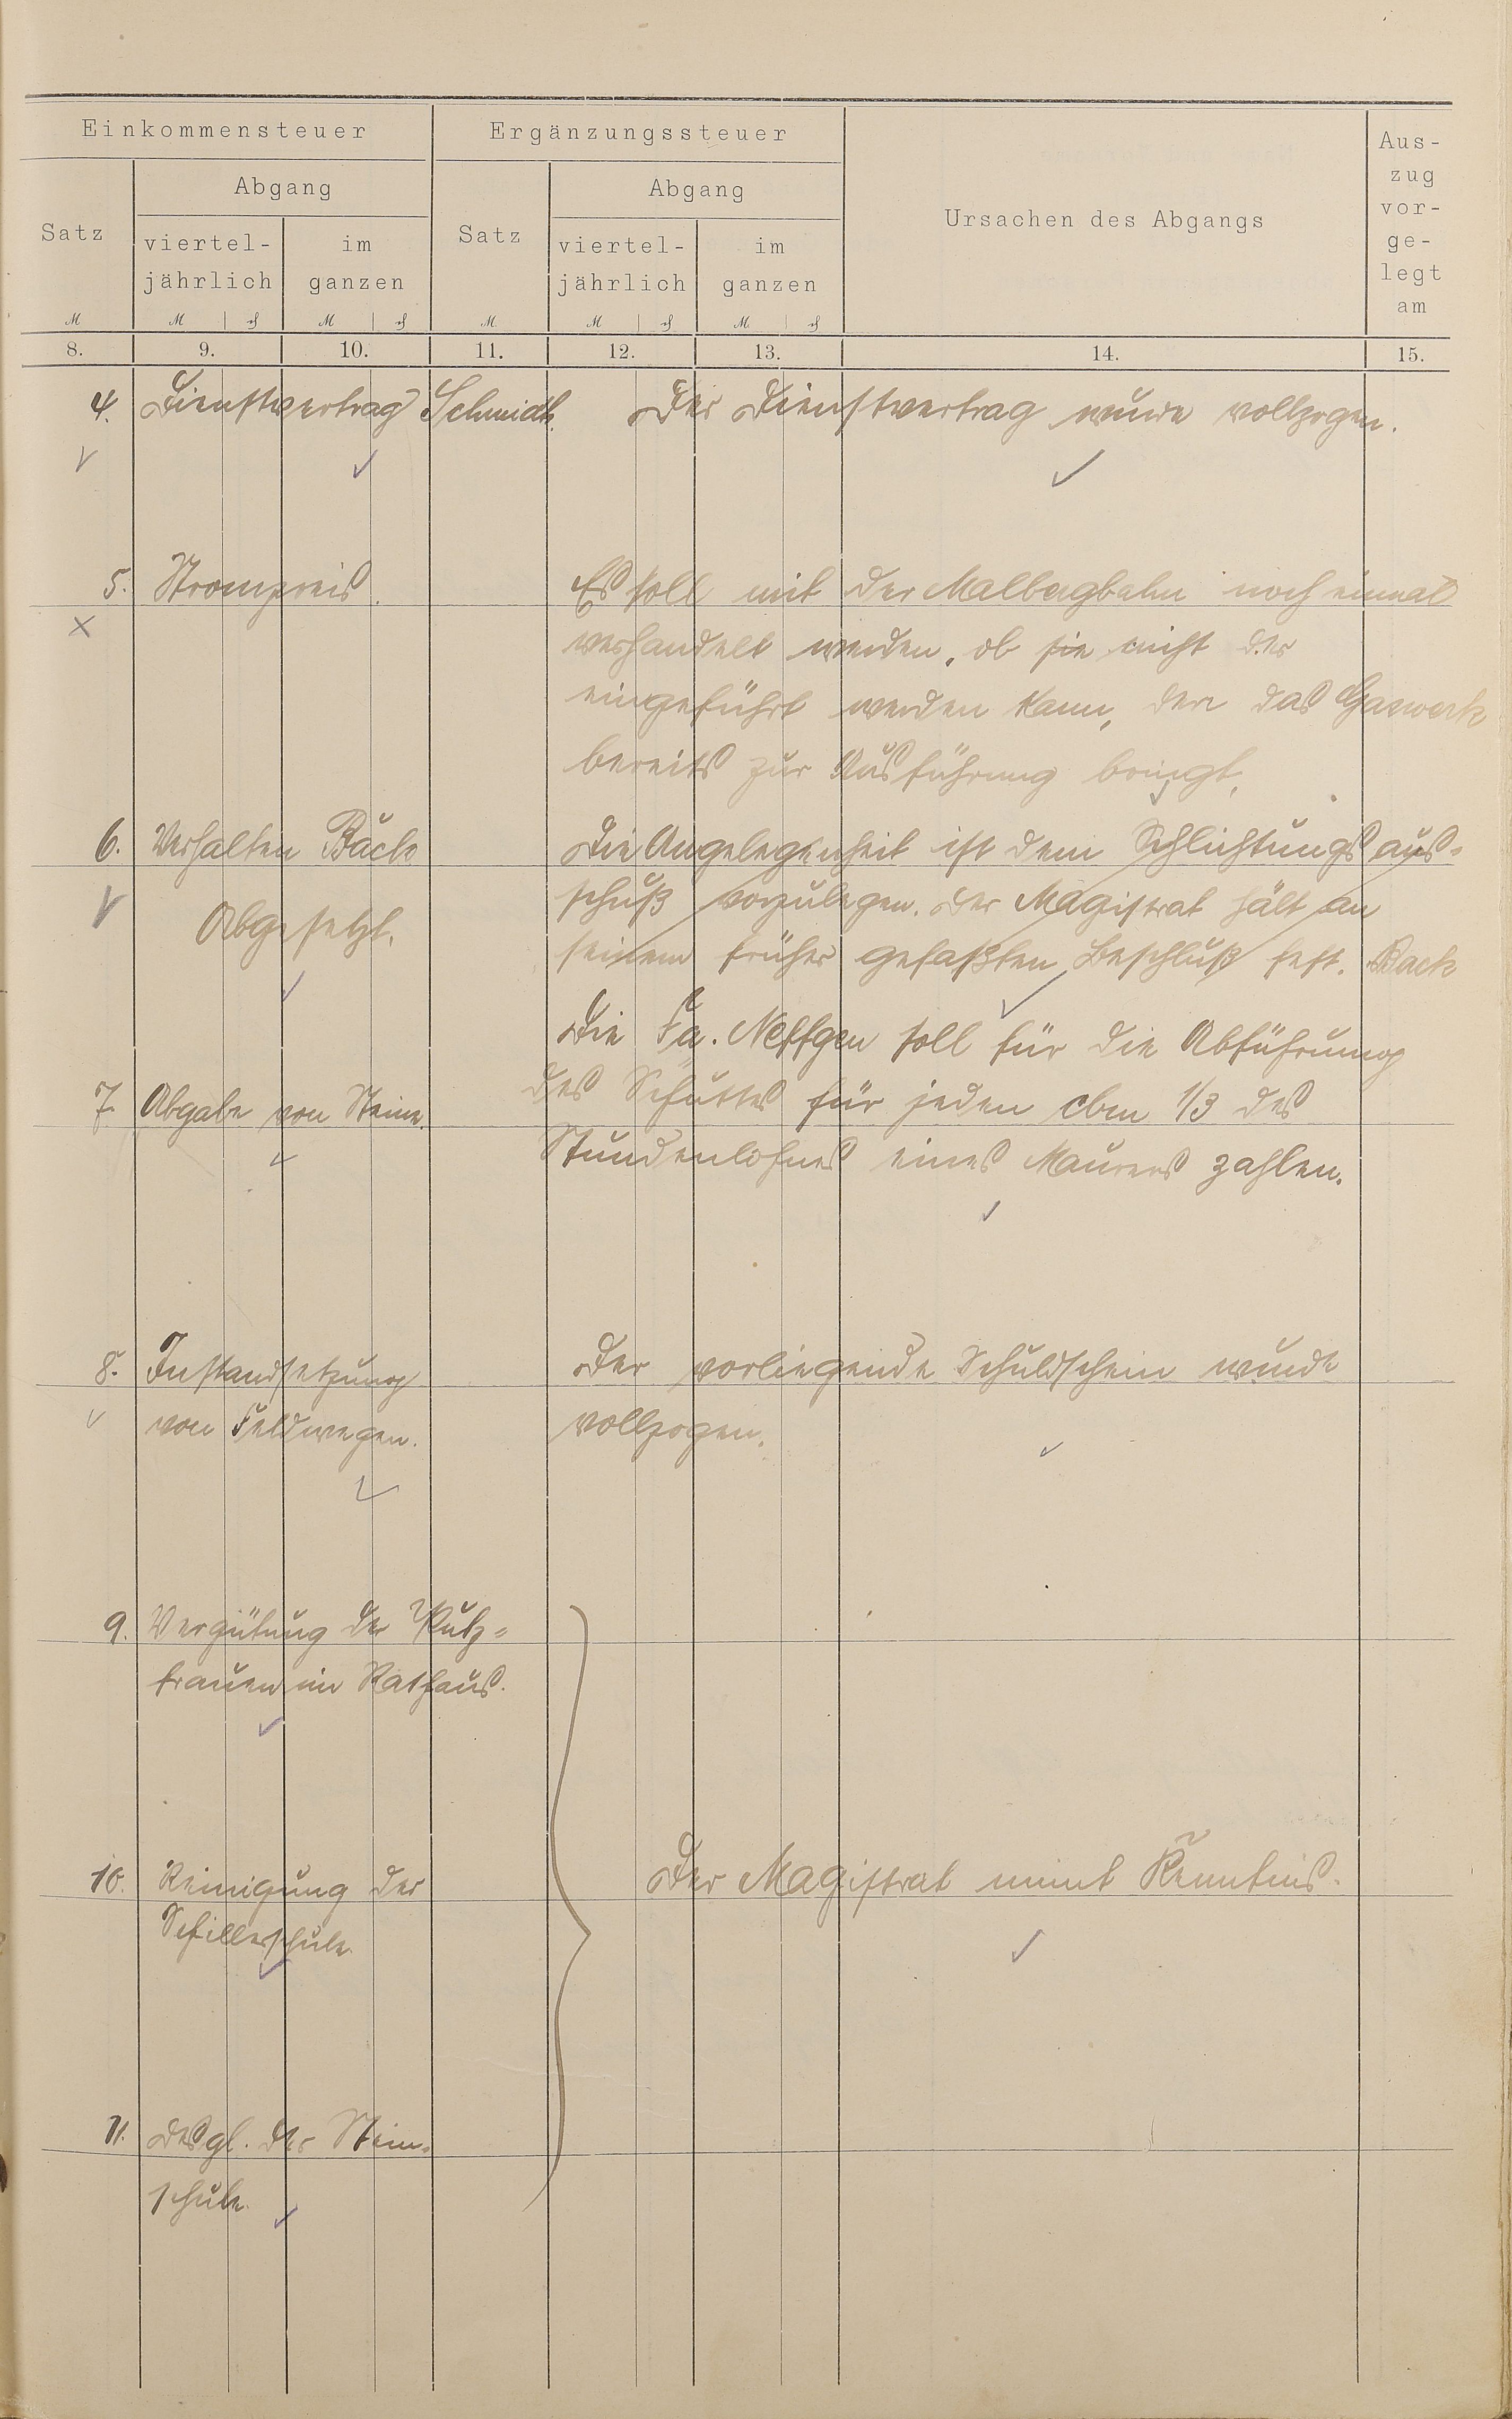 Einkommensteuer
Ergänzungssteuer
Ursachen des Abgangs
Aus-
zug
vor-
ge-
legt
am
Satz
Abgang
viertel-
jährlich
im
ganzen
Satz
Abgang
viertel-
jährlich
im
ganzen
M
M
₰
M
₰
M
M
₰
M
₰
8. 9. 10. 11. 12. 13. 14. 15.
4. Dienstvertrag Schmidt.
Der Dienstvertrag wurde vollzogen.
5. Strompreis.
Es soll mit der Malbergbahn noch einmal
verhandelt werden, ob sie nicht der
eingeführt werden kann, den das Gaswerk
bereits zur Ausführung bringt.
6. Verhalten Back
Abgesetzt.
Die Angelegenheit ist dem Schlichtungsaus-
schuß vorzulegen. Der Magistrat hält an
seinem früher gefaßten Beschluß fest. Back
7. Abgabe von Steine.
Die Fa. Neffgen soll für die Abführung
des Schuttes für jeden cbm 1/3 des
Stundenlohnes eines Maurers zahlen.
8. Instandsetzung
von Feldwegen.
Der vorliegende Schuldschein wurde
vollzogen.
9. Vergütung der Putz-
frauen im Rathaus.
10. Reinigung der
Schillerschule.
Der Magistrat nimt Kenntnis.
11. Desgl. der Stein-
schule.